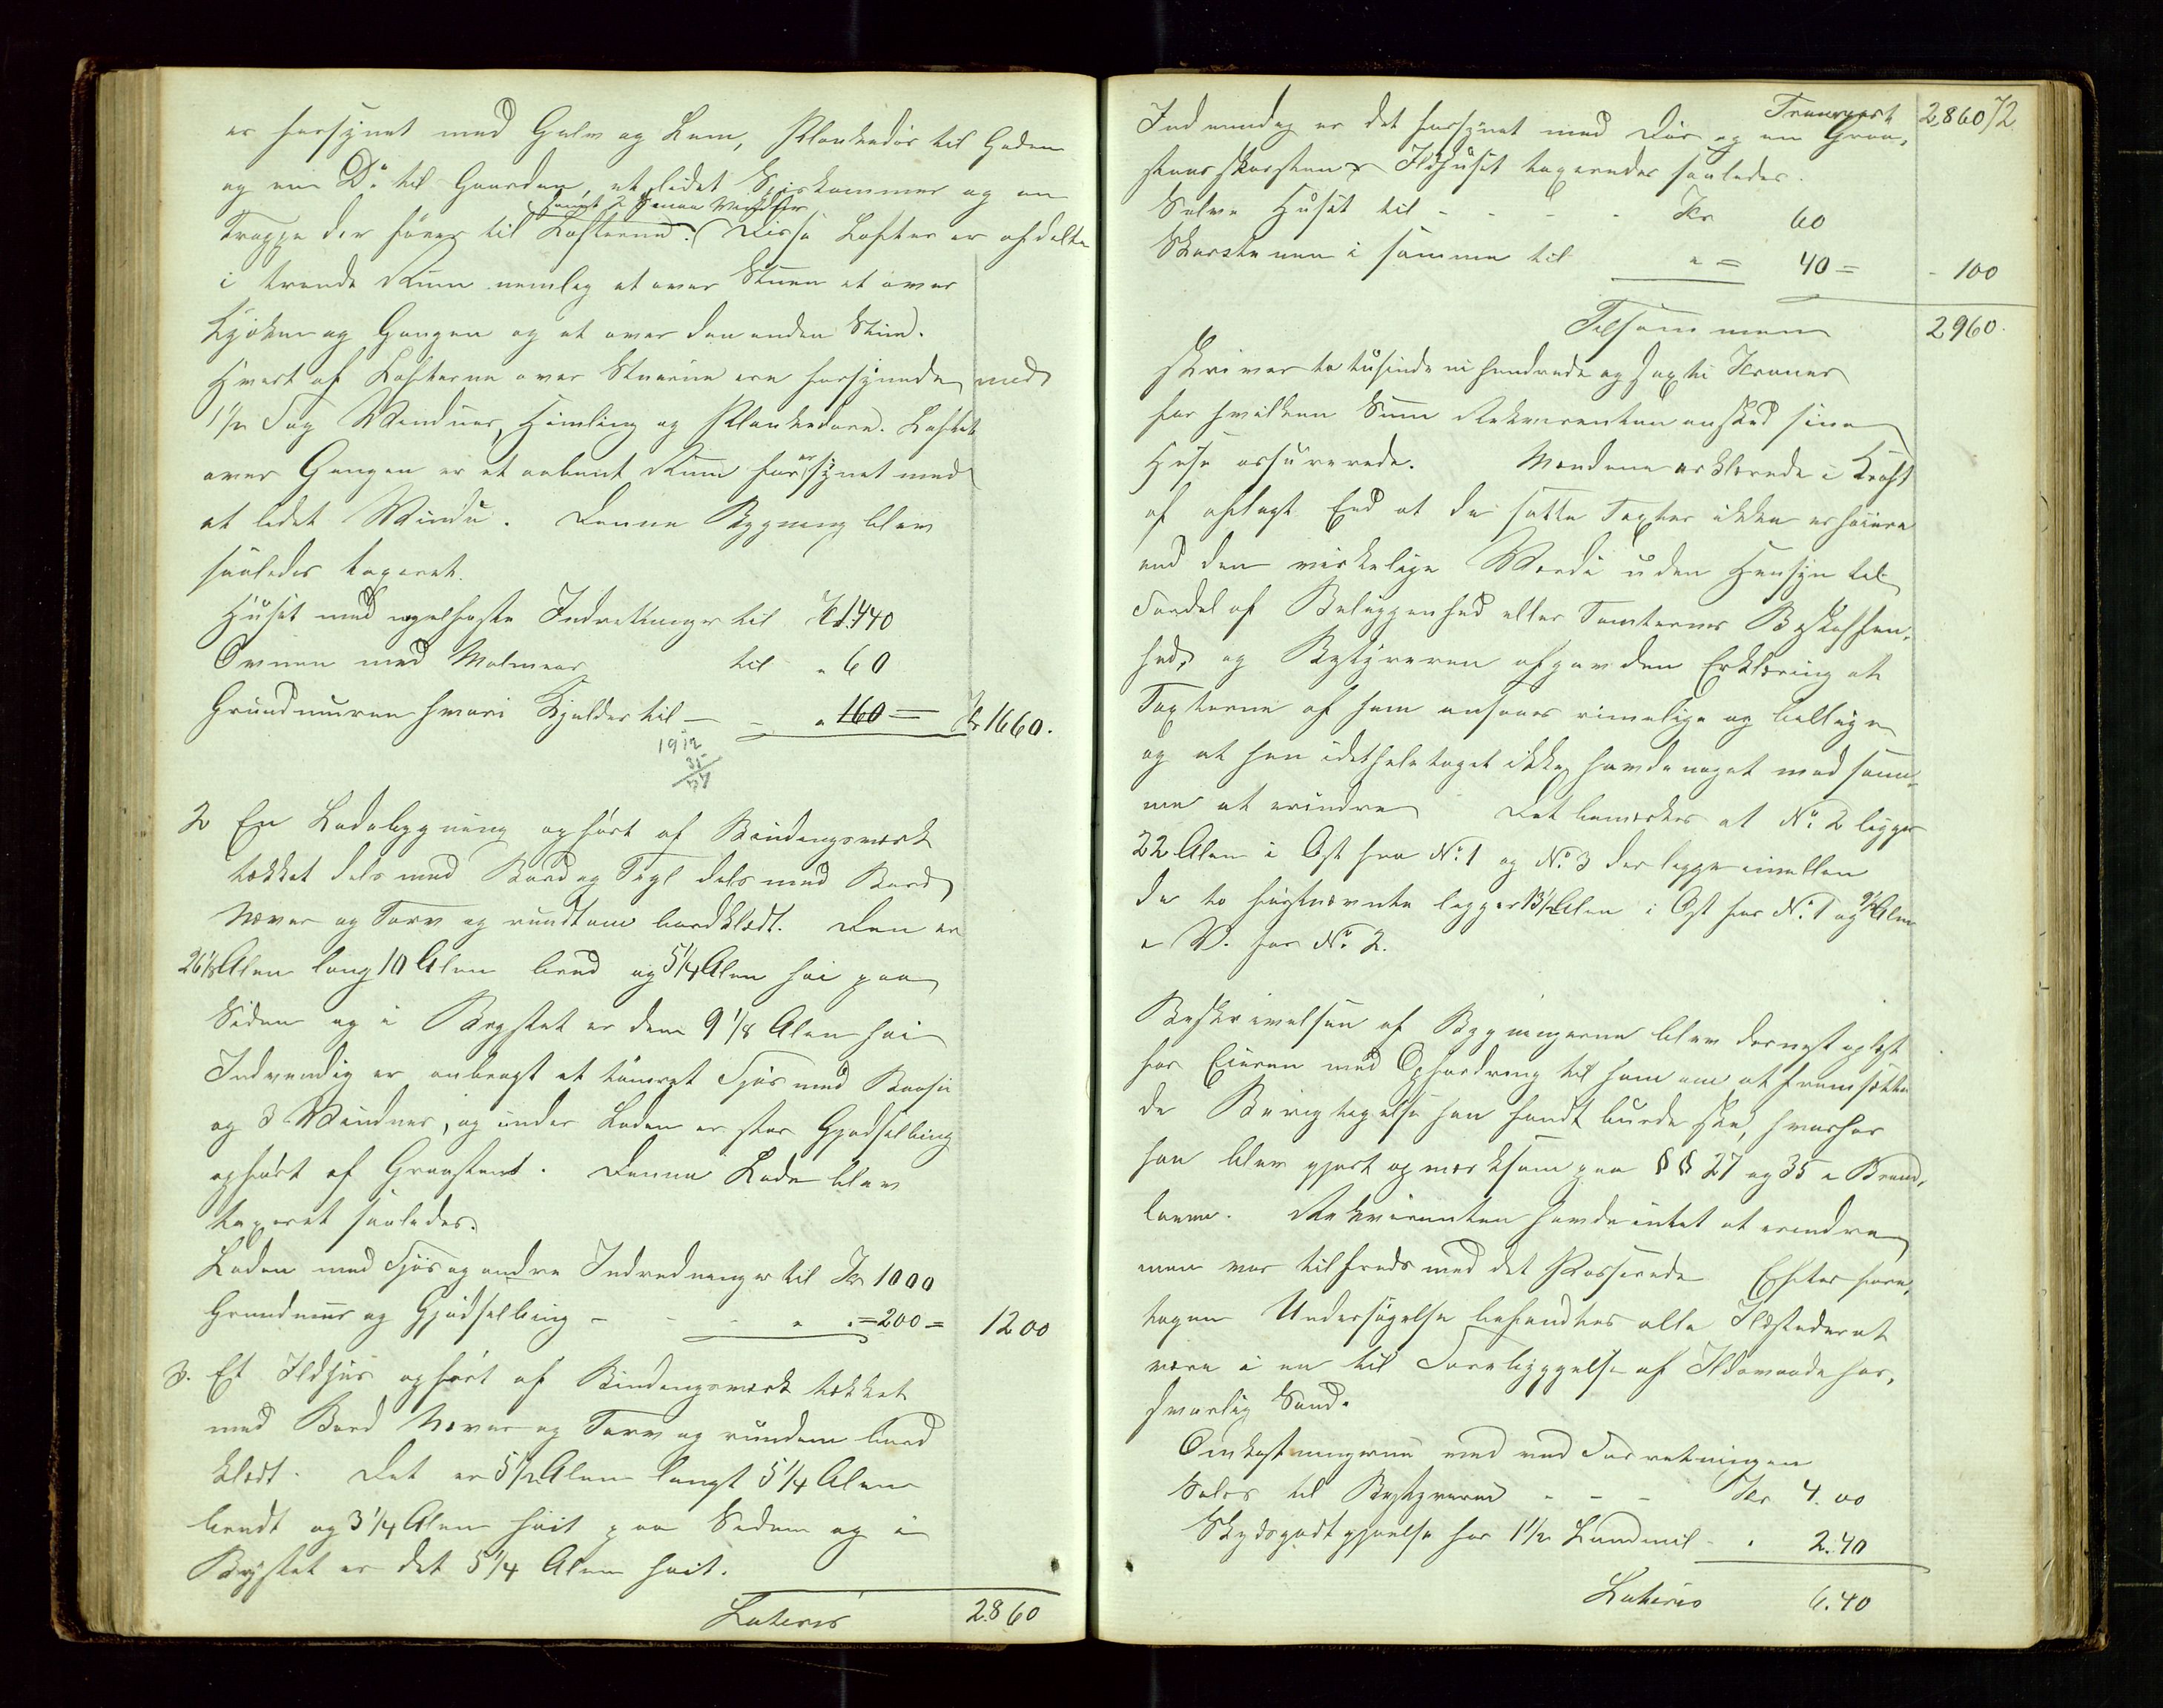 er forsynet med Gulv og Lem, Plankedör til Haven
og en Do til Gaarden, et lidet Spiskammer og en
samt 2 smaa Vinduer
Trappe der förer til Lofterne. Disse Lofter er afdelte
i trende Rum nemlig et over Stuen et over
Kjöken og Gangen og et over den anden Stue.
Hvert af Lofterne over Stuerne ere forsynede med
1 1/2 Fag Vinduer, Himling og Plankedöre. Loftet
over Gangen er et aabent Rum forsynet med
et lidet Vindu. Denne Bygning blev
saaledes taxeret.
Huset med nagelfaste Indretninger til Kr 1440
Ovnen med Malmrör til " 60
Grundmuren hvori Kjelder til - - " 160 = Kr 1660.
1912
35
77
2 En Ladebygning opfört af Bindingsverk
tækket dels med Bord og Tegl dels med Bord
Næver og Torv og rundtom bordklædt. Den er
26 1/2 Alen lang 10 Alen bred og 5 1/4 Alen höi paa
Siden og i Brystet er den 9 1/8 Alen höi
Indvendig er anbragt et tömret Fjös med Baase
og 3 Vinduer, og under Laden er stor Gjödselbing
opfört af Graasten. Denne Lade blev
taxeret saaledes.
Laden med Fjös og andre Indredninger til Kr 1000
Grundmur og Gjödselbing - - - " = 200 = 1200
3. Et Ildhus opfört af Bindingsverk tækket
med Bord Næver og Torv og rundom bord
klædt. Det er 5 1/2 Alen langt 5 1/4 Alen
bredt og 3 1/4 Alen höit paa Siden og i
Brystet er det 5 1/4 Alen höit.
Lateris 2860
Transport 2,860 72
Indvendig er det forsynet med Dör og en Graa-
stensskorsten. Ildhuset taxeredes saaledes.
Selve Huset til - - - - Kr 60
Skorstenen i samme til " = 40 = - 100
Tilsammen 2960.
skriver to tusinde ni hundrede og sexti Kroner
for hvilken Sum Rekvirenten önsked sine
Huse assurerede. Mændene erklærede i Kraft
af aflagt Eed at de satte Taxter ikke er höiere
end den virkelige Værdi uden Hensyn til
Fordel af Beliggenhed eller Tomternes Beskaffen-
hed, og Bestyreren afgav den Erklæring at
Taxterne af ham ansees rimelige og billige
og at han idethele taget ikke havde noget mod sam-
me at erindre Det bemærkes at No. 2 ligger
22 Alen i Öst fra No. 1 og No. 3 der ligger imellem
de to förstnævnte ligger 13 1/2 Alen i Öst for No. 1 og 9 1/2 Alen
i V. for No. 2.
Beskrivelsen af Bygningerne blev dernæst oplæst
for Eieren med Opfordring til ham om at fremsætte
de Berigtigelse han fandt burde ske, hvorhos
han blev gjort opmærksom paa §§ 27 og 35 i Brand-
loven. Rekvirenten havde intet at erindre
men var tilfreds med det Passerede Efter fore-
tagen Undersögelse befandtes alle Ildsteder at
være i en til Forebyggelse af Ildsvaade for-
svarlig Stand.
Omkostningerne ved Forretningen
Salær til Bestyreren - - - Kr. 4.00
Skydsgodtgjørelse for 1 1/2 Landmil - " 2.40
Lateris 6.40